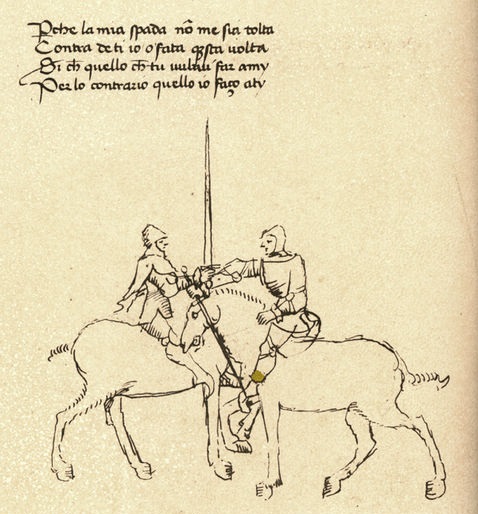 Pche la mia spada nō me sia tolta
Contra de ti io o fata q̄sta volta
Di ch̄ quello ch̄ tu vulivi far amy
Per lo contrario quello io faço aty